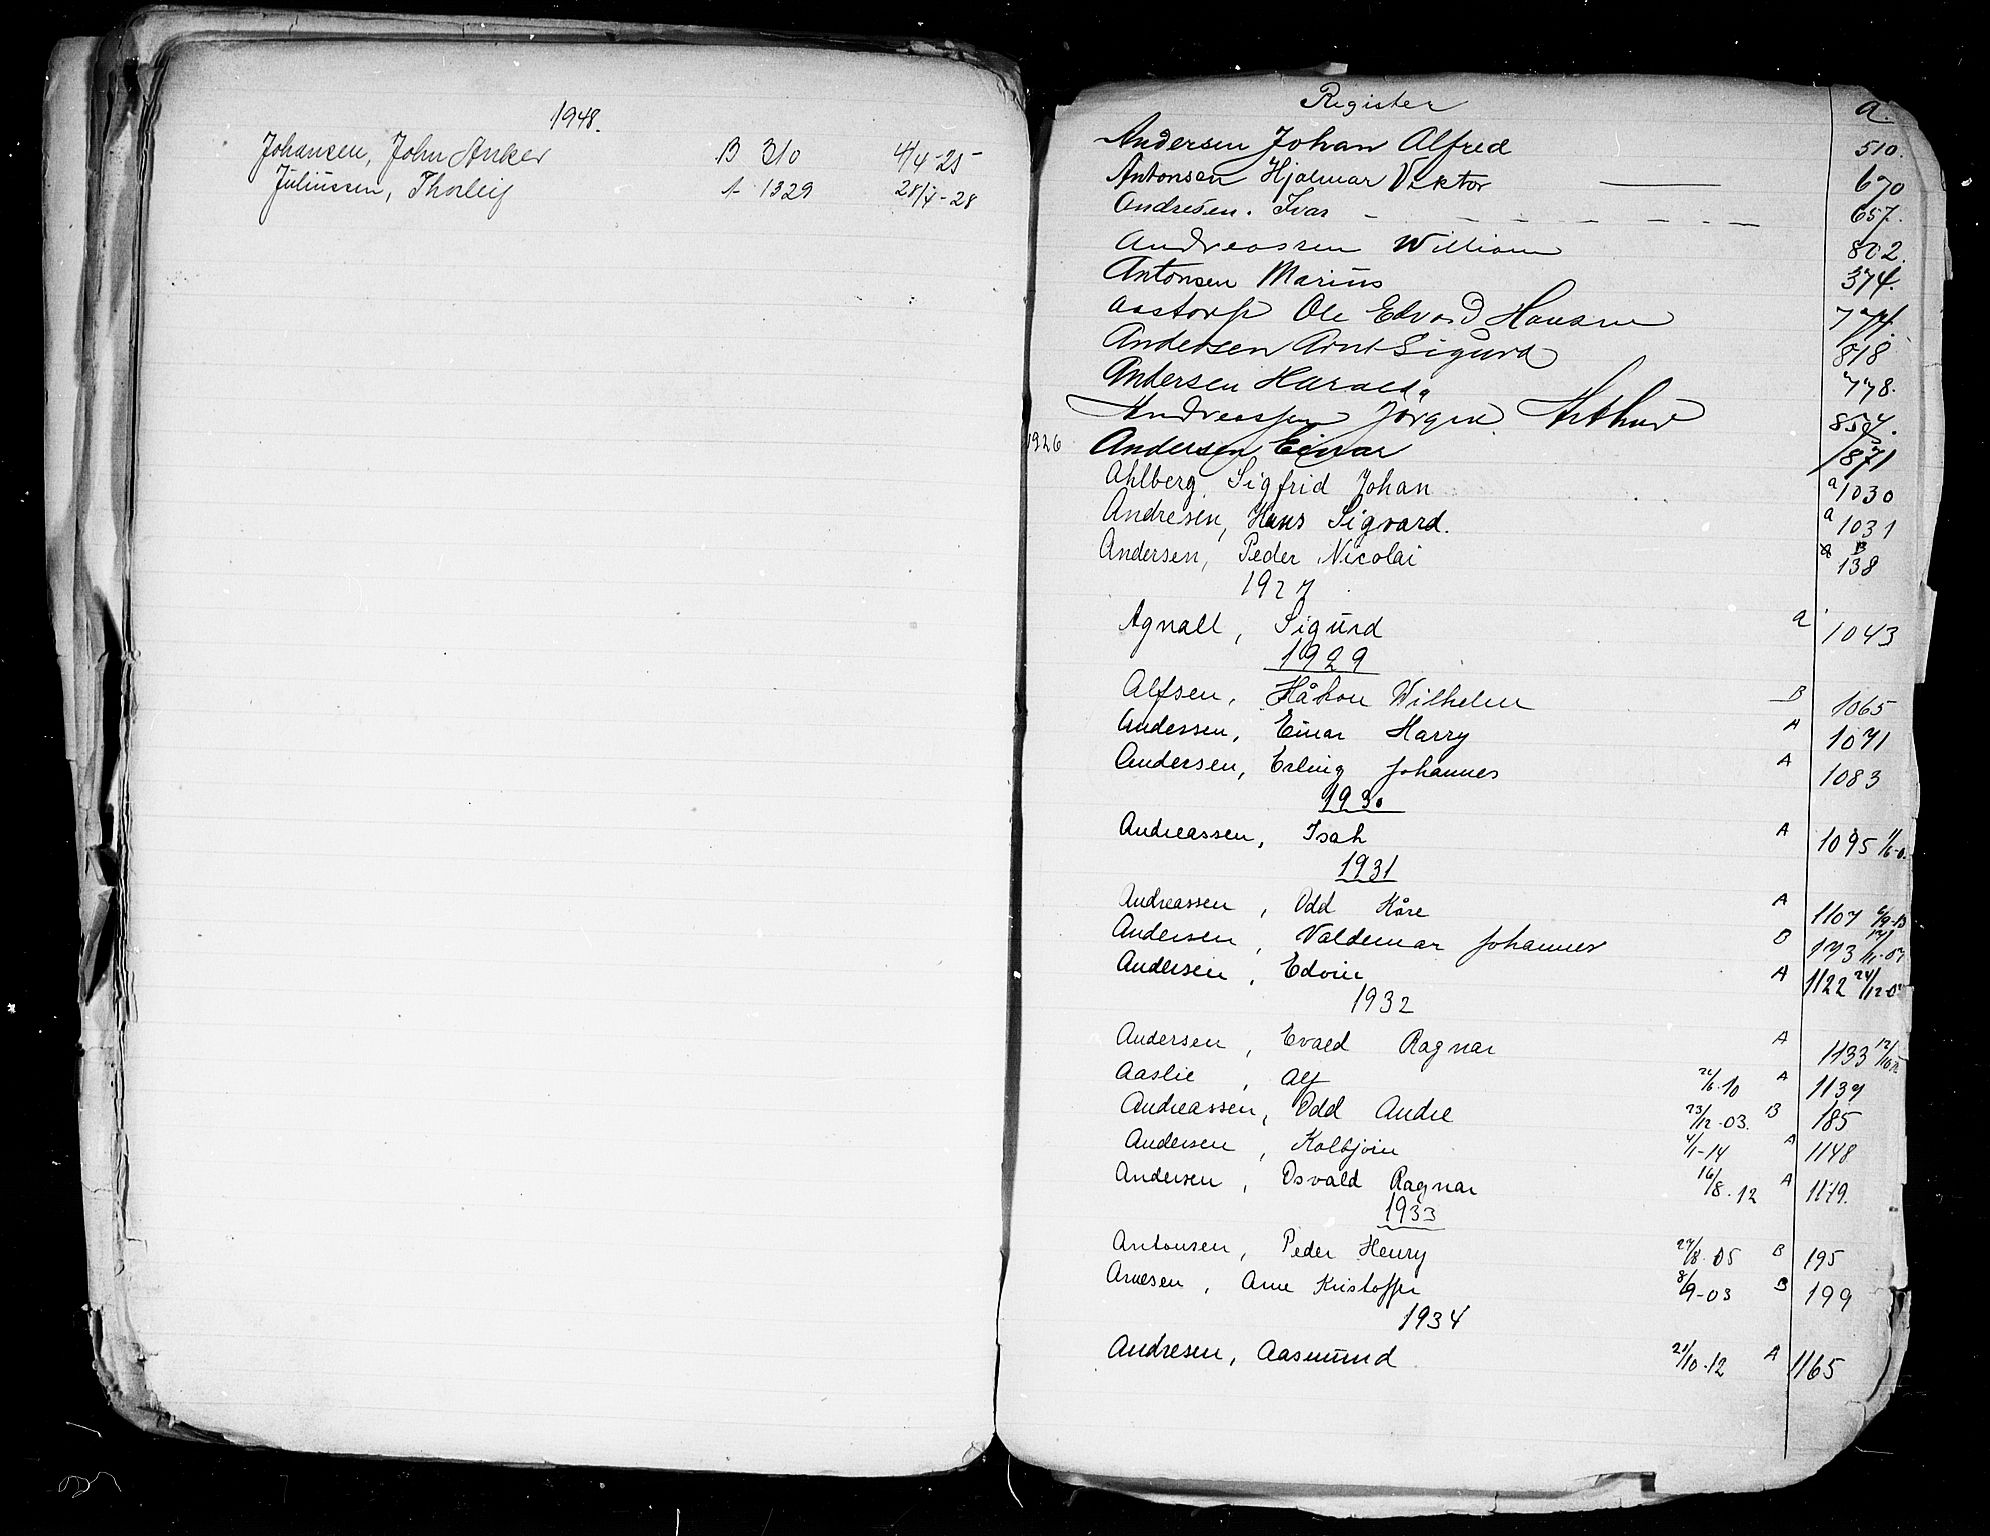 1948.
Johansen, John Anker B 310 4/4-25
Juliussen, Thorleif A 1329 28/4-28
Register a.
Andersen Johan Alfred 510.
Antonsen Hjalmar Viktor 670
Andresen. Ivar 657.
Andreassen William 802.
Antonsen Marius 374.
Aastorp Ole Edvard Hansen 774.
Andersen Arnt Sigurd 818
Andersen Harald 778.
Andreassen Jörgen Arthur 854.
1926 Andersen Einar 1871
Ahlberg, Sigfrid Johan a 1030
Andresen, Hans Sigvard. a 1031
Andersen, Peder Nicolai B 138
1927
Agnall, Sigurd a 1043
1929
Alfsen, Håkon Wilhelm B 1065
Anderssen, Einar Harry A 1071
Andersen, Erling Johannes A 1083
1930
Andreassen, Isak A 1095
1931
Andreassen, Odd Kåre A 1107
Andersen, Valdemar Johannes B 173
Andersen, Edvin A 1122 24/12-0
1932
Andersen, Evald Ragnar A 1133
Aaslie, Alf 10 A 1139
Andreassen, Odd Andre 23/12-03. B 185
Andersen, Kolbjörn 4/1-14 A 1148
Andersen, Osvald Ragnar 16/8.12 A 1179.
1933
Antonsen, Peder Henry 27/8.05 B 195
Arnesen, Arne Kristoffer 8/9-03 B 199
1934
Andresen, Aasmund 21/10.12 A 1165